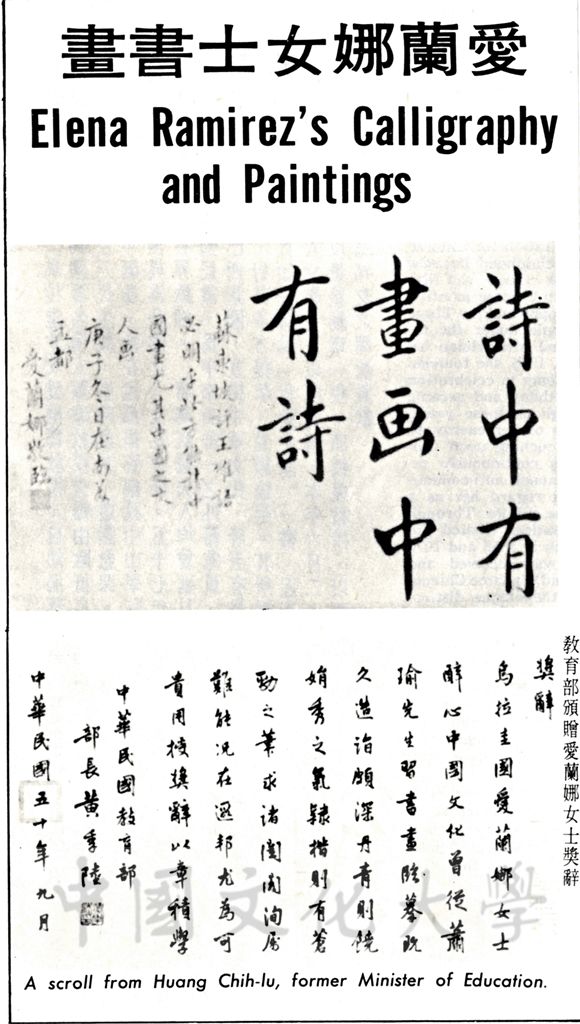 愛蘭娜女士書畫
Elena Ramirez's Calligraphy
and Paintings
詩中有
畫画中
有詩
蘇東坡評王維語
必明乎此方能中
國畫尤其中國之文
人画
庚子冬日在南美
都
愛蘭娜敬臨
教育部頒贈愛蘭娜女士獎辭
獎辭
烏拉圭國愛蘭娜女士
醉心中國文化曾從蕭
瑜先生習書畫臨摹既
久造詣頗深丹青則饒
娟秀之氣隸楷則有蒼
勁之筆求諸閨閣洵屬
難能況在遐邦尤為可
貴用授獎辭以章積學
中華民國教育部
部長黃季陸
中華民國五十年九月
中國文化大學
A scroll from Huang Chih-lu, former Minister of Education.